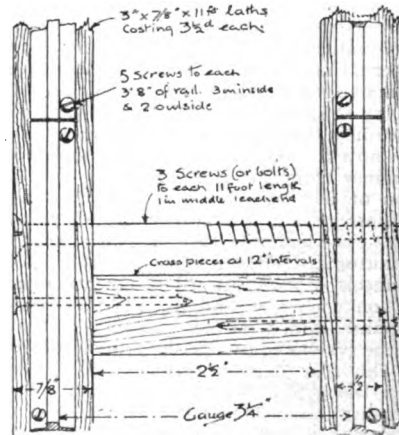 3" x 7/8" x 11 ft laths
costing 3½d each.
5 screws to each
3'8" of rail. 3 in inside
& 2 outside
3 Screws (or bolts)
to each 11 foot length
1 in middle 1 each end
cross pieces at 12" intervals
7/8"
2½"
1/2
Gauge 3¼"